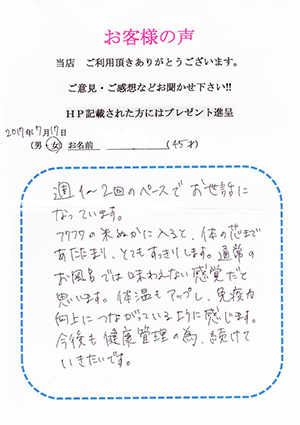 お客様の声
当店　ご利用頂きありがとうございます。
ご意見・ご感想などお聞かせ下さい!!
HP記載された方にはプレゼント進呈
2017年7月17日
(男・女) お名前 (45才)
週1〜2回のペースでお世話に
なっています。
フワフワの米ぬかに入ると、体の芯まで
あたたまり、とてもすっきりします。通常の
お風呂では味わえない感覚だと
思います。体温もアップし、免疫力
向上につながっているように感じます。
今後も健康管理の為、続けて
いきたいです。